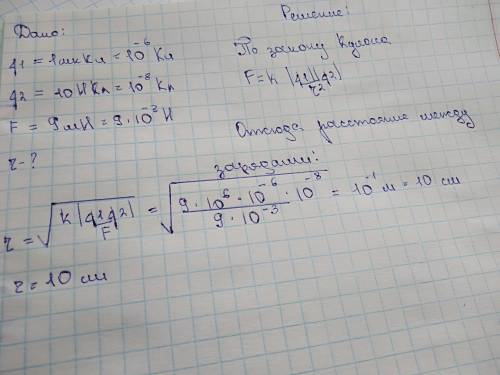 Дано:
q1 = 1мкКл = 10^-6 Кл
q2 = 10нКл = 10^-8 Кл
F = 9мН = 9·10^-3 Н
r - ?
Решение:
По закону Кулона
F = k |q1||q2| / r2
Отсюда расстояние между
зарядами:
r = √(k|q1q2| / F) = √(9·10^6·10^-6·10^-8 / 9·10^-3) = 10^-1 м = 10 см
r = 10 см